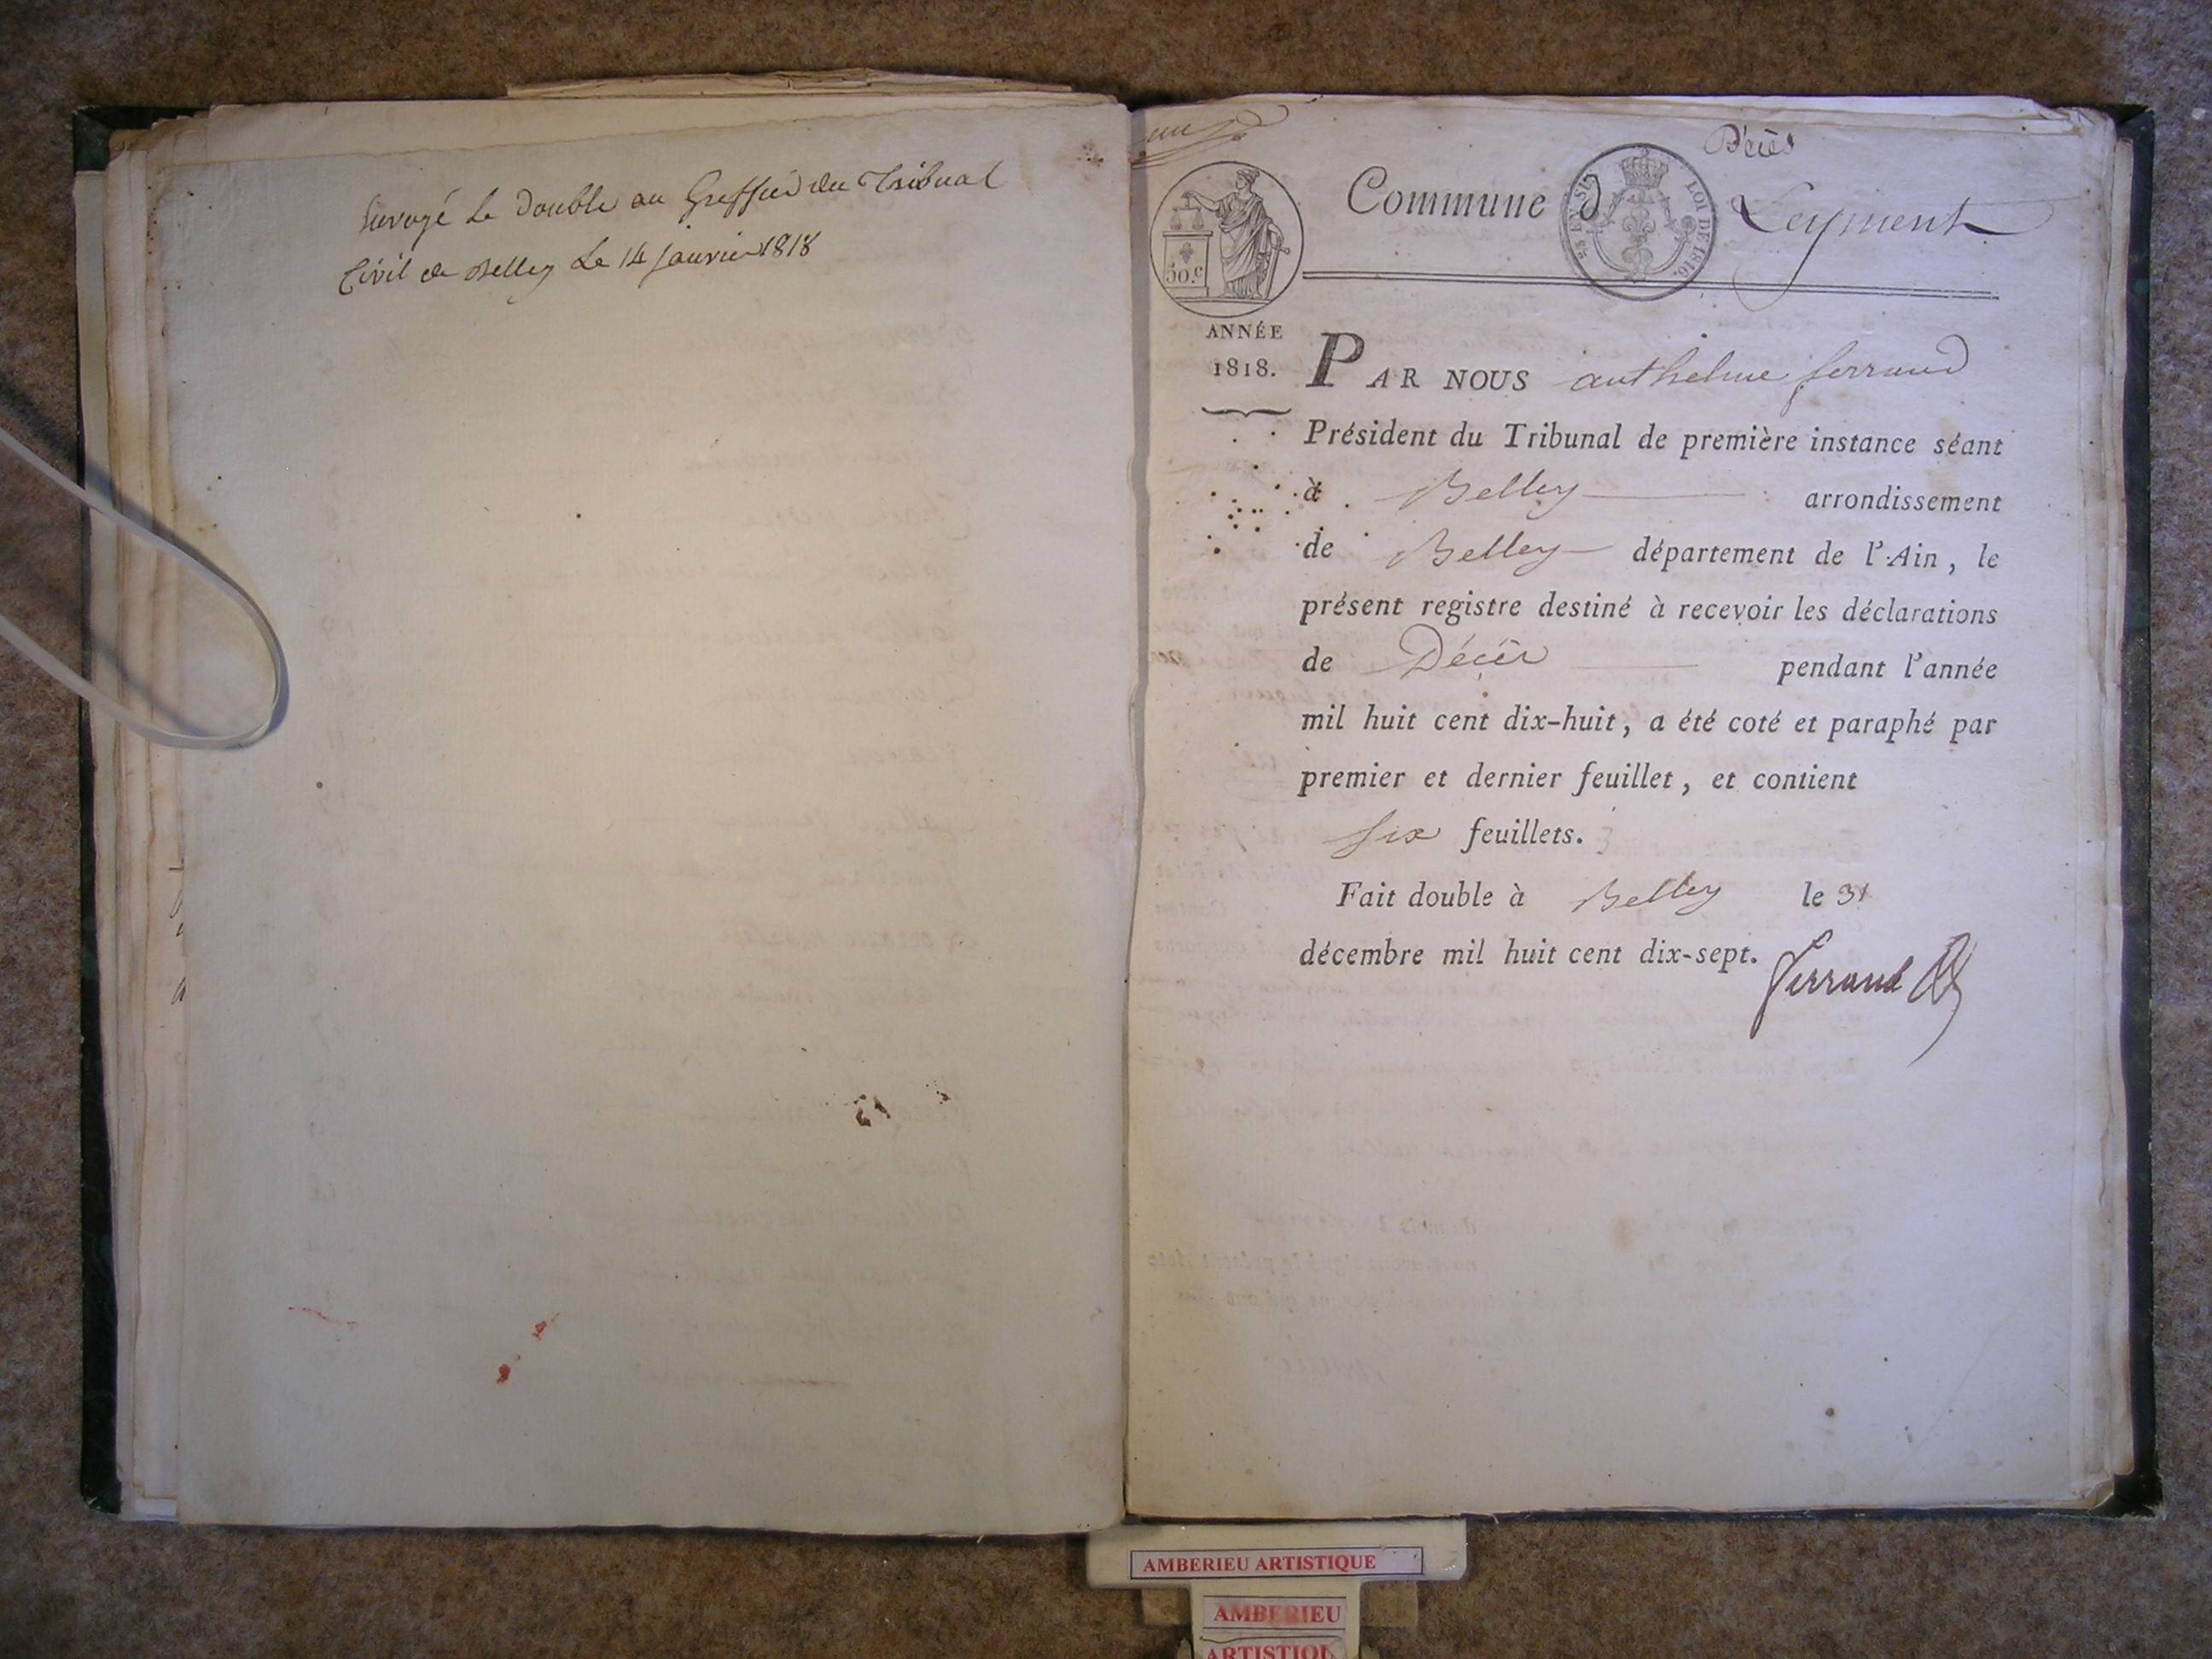 Envoyé le double au Greffier du Tribunal
Civil de Belley Le 14 janvier 1818
Décès
Commune d Leyment
50.c
LOI DE 1816.
ANNÉE
1818.
PAR NOUS anthelme ferrand
Président du Tribunal de première instance séant
à Belley arrondissement
de Belley département de l'Ain, le
présent registre destiné à recevoir les déclarations
de Décès pendant l'année
mil huit cent dix-huit, a été coté et paraphé par
premier et dernier feuillet, et contient
six feuillets.
Fait double à Belley le 31
décembre mil huit cent dix-sept.
ferrand
AMBERIEU ARTISTIQUE
AMBERIEU
ARTISTIQU